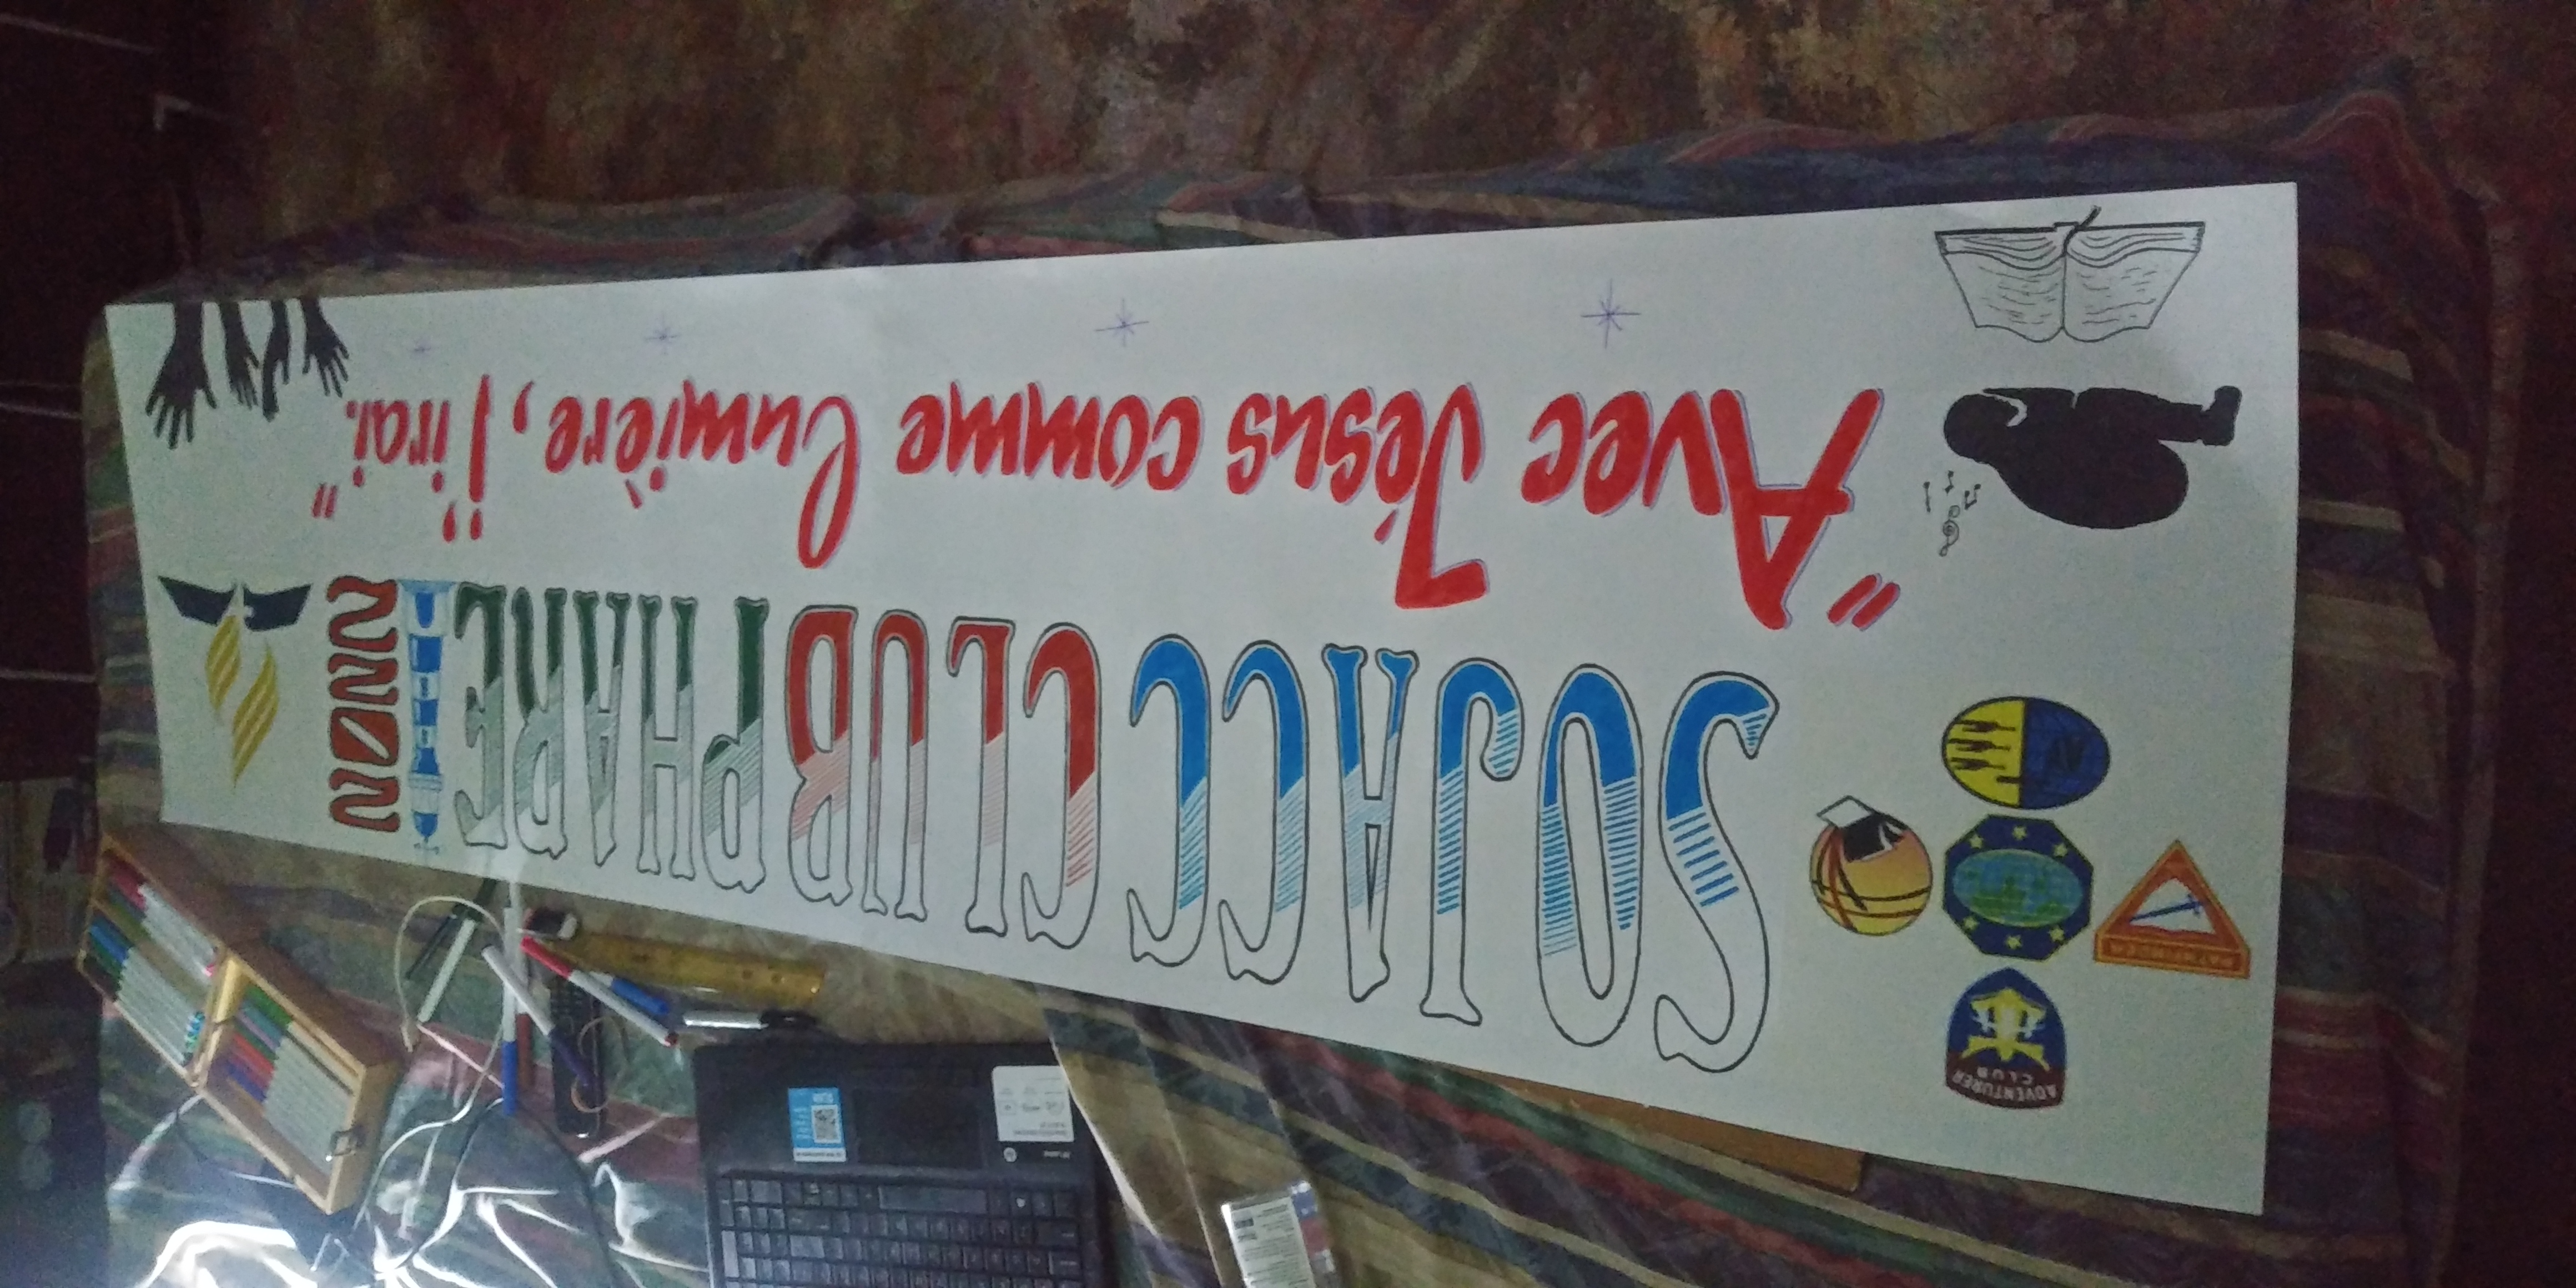 ADVENTURER
CLUB
PATHFINDER
AY
SOJACC CLUB PHARE
"Avec Jésus comme lumière, j'irai."